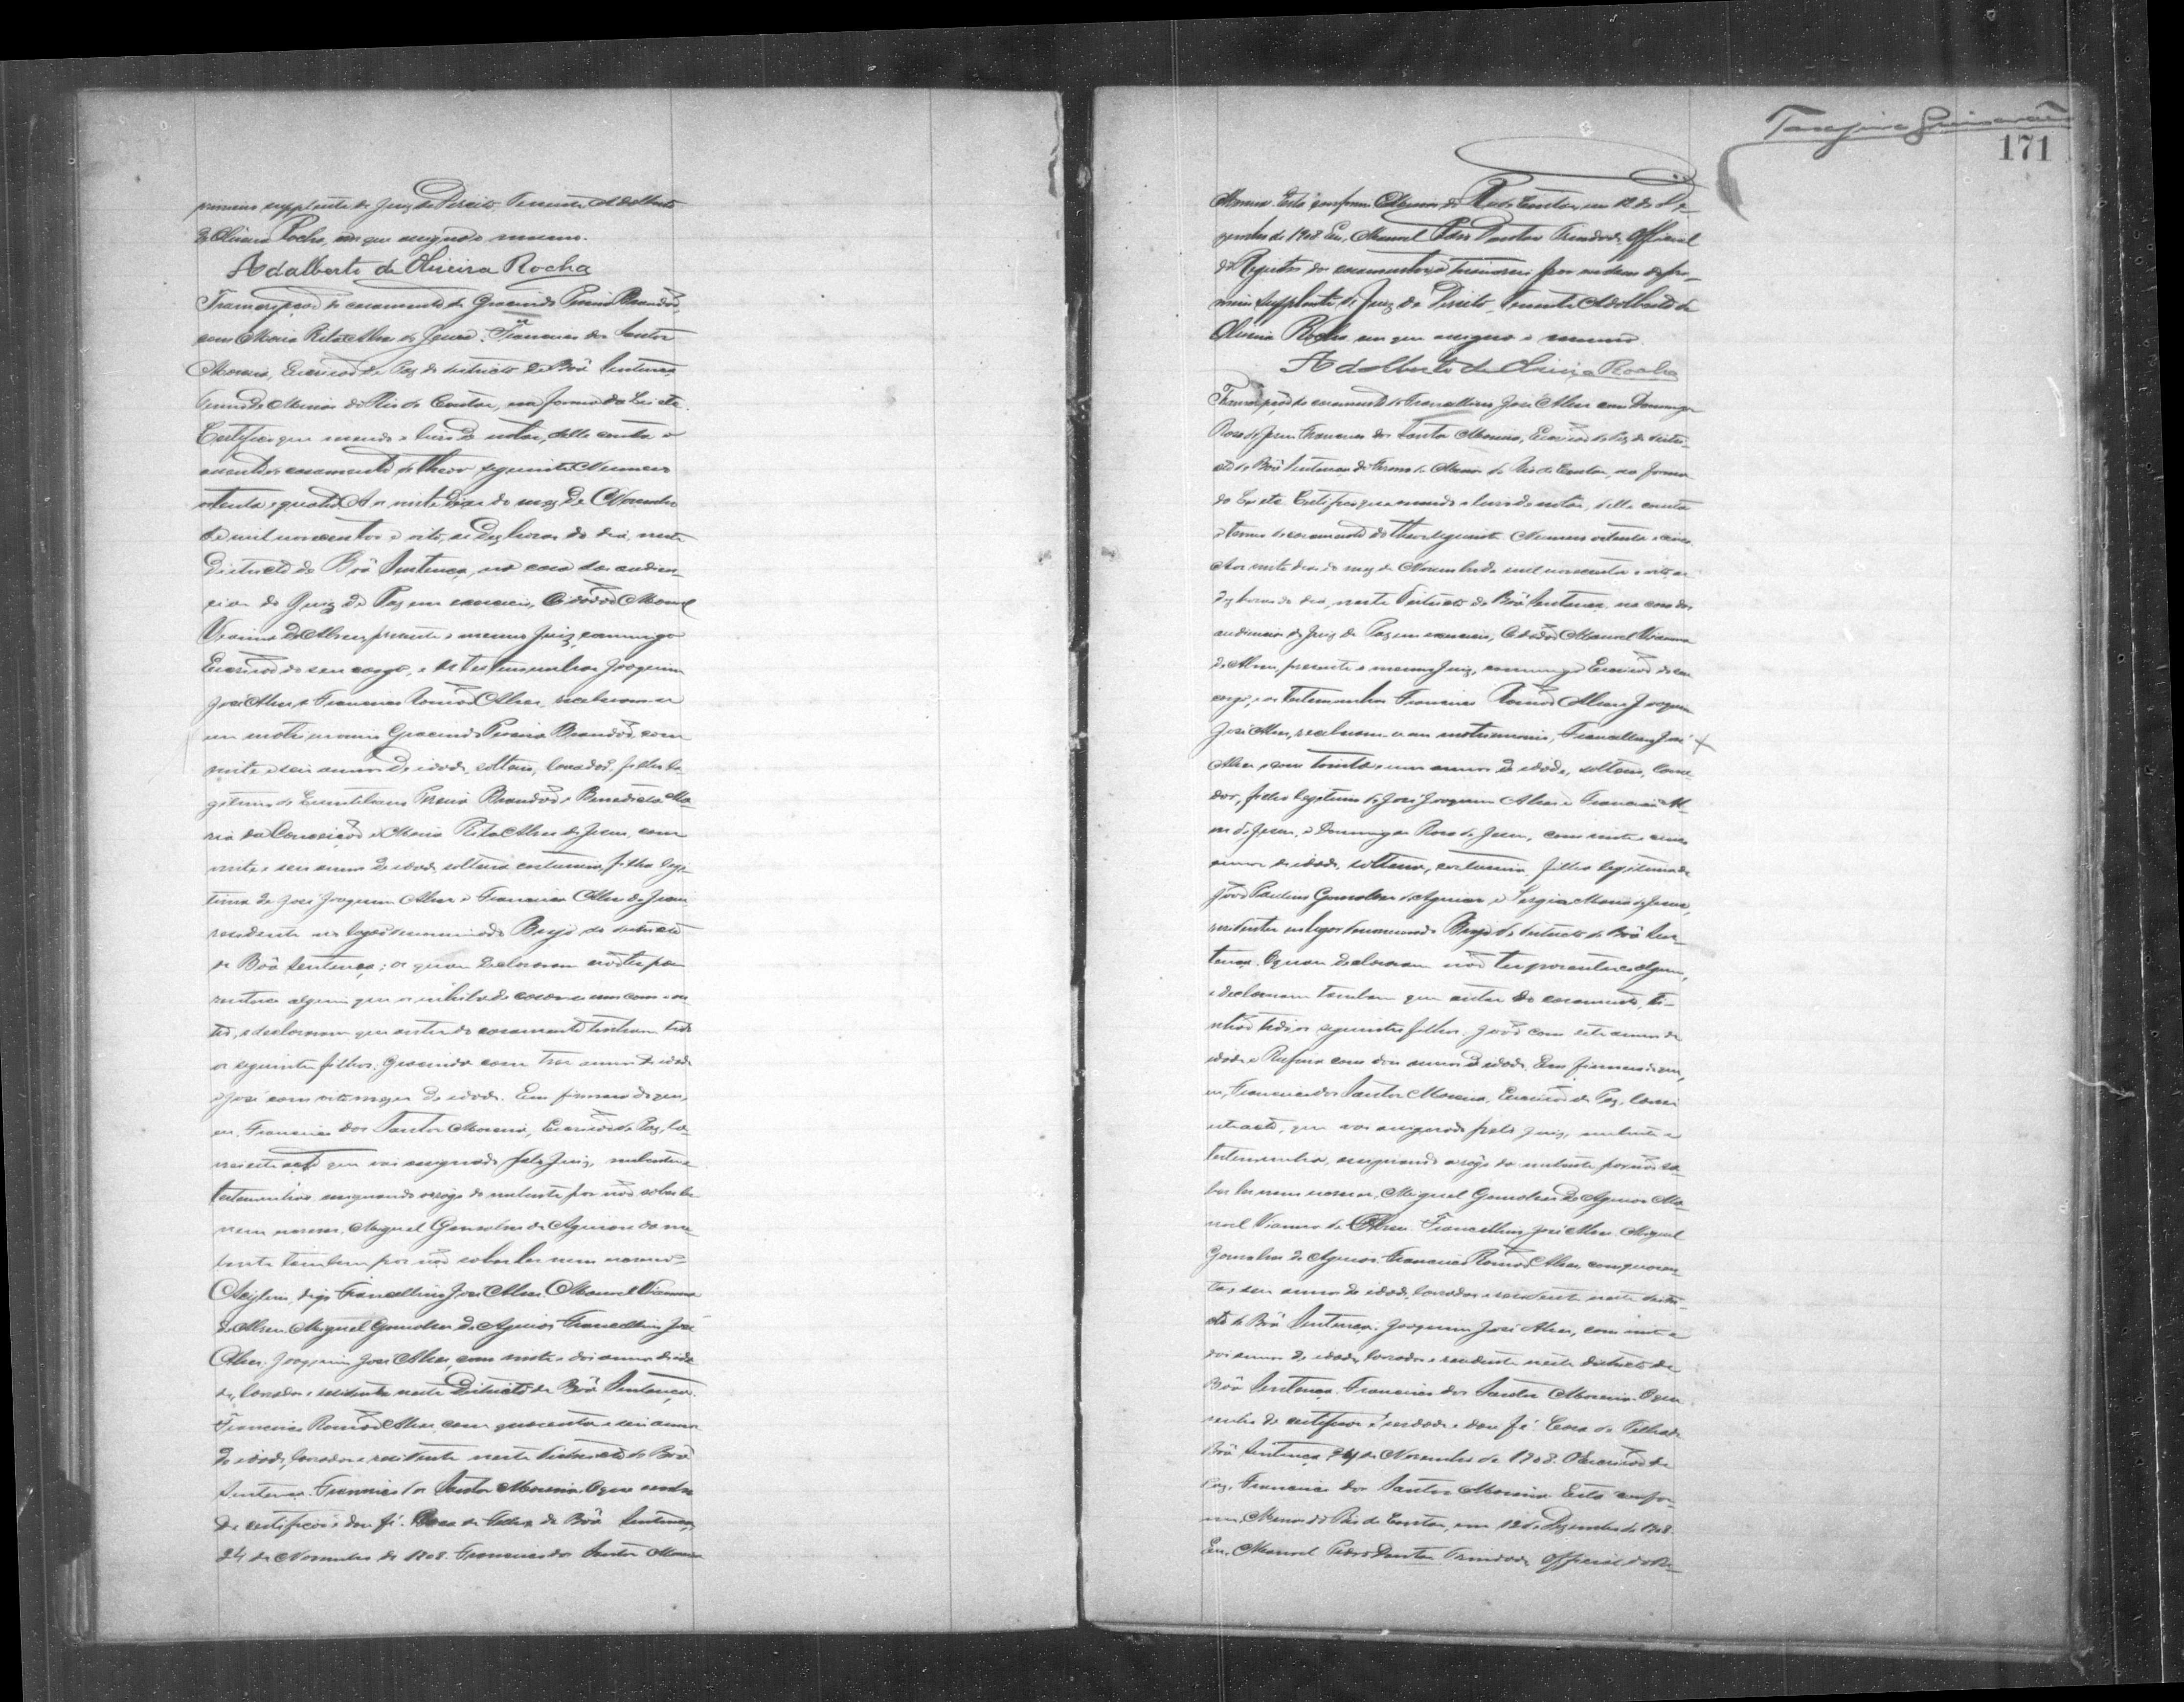 primeiro supplente do Juiz de Direito, Tenente Adalberto
de Oliveira Rocha, em que assigna o mesmo.
Adalberto de Oliveira Rocha
Transcripção do casamento de Gracindo Pereira Brandão,
com Maria Rita Alves de Jesus. Francisco dos Santos
Moreira, Escrivão de Paz do districto de Bôa Sentença,
Termo de Minas do Rio de Contas, na forma da Lei etc.
Certifico que revendo o livro de notas, delle consta o
assento de casamento do theor seguinte: Numero
oitenta e quatro. Aos vinte dias do mez de Novembro
de mil novecentos e oito, as dez horas do dia, neste
Districto de Bôa Sentença, na casa das audien-
cias do Juiz de Paz em exercicio, Cidadão Manoel
Vianna de Abreu, presente o mesmo Juiz, commigo
Escrivão do seu cargo, e as testemunhas Joaquim
José Alves e Francisco Romão Alves, receberam-se
em matrimonio Gracindo Pereira Brandão, com
vinte e seis annos de idade, solteiro, lavrador, filho le-
gitimo de Pereira Brandão e Benedicta Ma-
ria da Conceição e Maria Rita Alves de Jesus, com
vinte e seis annos de idade, solteira, costureira, filha legi-
tima de José Joaquim Alves e Francisca Alves de Jesus
residente no logar denominado Brejo do districto
de Bôa Sentença; os quaes declararam não ter pa-
rentesco algum que os inhiba de casar-se um com o ou-
tro, e declararam que antes do casamento tinham tido
os seguintes filhos: Gracinda com tres annos de idade
e José com oito mezes de idade. Em firmeza do que,
eu, Francisco dos Santos Moreira, Escrivão de Paz, la-
vrei este acto que vai assignado pelo Juiz, nubentes e
testemunhas, assignando a rogo do nubente por não saber ler
nem escrever, Miguel Gonsalves de Aguiar e da nu-
bente tambem por não saber ler nem escrever
digo Francellino José Alves. Manoel Vianna
de Abreu. Miguel Gonsalves de Aguiar. Francellino José
Alves. Joaquim José Alves, com vinte e dois annos de ida-
de, lavrador e residente neste Districto de Bôa Sentença.
Francisco Romão Alves, com quarenta e seis annos
de idade, lavrador e residente neste Districto de Bôa
Sentença. Francisco dos Santos Moreira. O que
de certificar e dou fé. Casa de Telha de Bôa Sentença,
24 de Novembro de 1908. Francisco dos Santos Moreira
Moreira. Está conforme. Minas do Rio de Contas, em 12 de De-
zembro de 1908. Eu, Manoel Pedro Dantas Trindade, Official
do Registro dos casamentos, transcrevi por ordem do pri-
meiro supplente do Juiz de Direito, Tenente Adalberto de
Oliveira Rocha, em que assigna o mesmo
Adalberto de Oliveira Rocha
Transcripção do casamento de Francellino José Alves com Domingas
Rosa de Jesus. Francisco dos Santos Moreira, Escrivão de Paz do distri-
cto de Bôa Sentença do Termo de Minas do Rio de Contas, na forma
da Lei etc. Certifico que revendo o livro de notas, delle consta
o termo de casamento do theor seguinte. Numero oitenta e cinco
Aos vinte dias do mez de Novembro de mil novecentos e oito, as
dez horas do dia, neste Districto de Bôa Sentença, na casa das
audiencias do Juiz de Paz em exercicio, Cidadão Manoel Vianna
de Abreu, presente o mesmo Juiz, commigo Escrivão do seu
cargo, e as testemunhas Francisco Romão Alves e Joaquim
José Alves, receberam-se em matrimonio, Francellino José
Alves, com trinta e um annos de idade, solteiro, lavra-
dor, filho legitimo de José Joaquim Alves e Francisca Al-
ves de Jesus, e Domingas Rosa de Jesus, com vinte e cinco
annos de idade, solteira, costureira, filha legitima de
João Paulino Gonsalves de Aguiar e Sergia Maria de Jesus,
residentes no logar denominado Brejo do districto de Bôa Sen-
tença. Os quaes declararam não ter parentesco algum,
e declararam tambem que antes do casamento, ti-
nhão tido os seguintes filhos: João com sete annos de
idade e Rufina com dois annos de idade. Em firmeza do que,
eu, Francisco dos Santos Moreira, Escrivão de Paz, lavrei
este acto, que vai assignado pelo Juiz, nubente e
testemunhas, assignando a rogo da nubente por não sa-
ber ler nem escrever, Miguel Gonsalves de Aguiar. Ma-
noel Vianna de Abreu. Francellino José Alves. Miguel
Gonsalves de Aguiar. Francisco Romão Alves, com quaren-
ta e seis annos de idade, lavrador e residente neste distri-
cto de Bôa Sentença. Joaquim José Alves, com vinte e
dois annos de idade, lavrador e residente neste districto de
Bôa Sentença. Francisco dos Santos Moreira. O que
de certificar é verdade e dou fé. Casa de Telha de
Bôa Sentença, 24 de Novembro de 1908. O Escrivão de
Paz, Francisco dos Santos Moreira. Está confor-
me. Minas do Rio de Contas, em 12 de Dezembro de 1908.
Eu, Manoel Pedro Dantas Trindade, Official do Re-
171